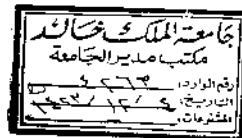 جامعة الملك خالد
مكتب مدير الجامعة
رقم الوارد: ٤٢٦٣
التاريخ: ١٤٢٣/١٢/٤
المشفوعات: